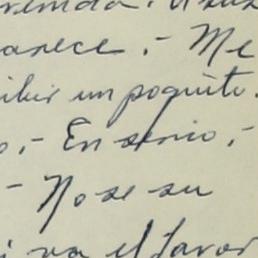 arece.- Me
ibir un poquito.
o.- En serio,-
- No se su
i va el favor